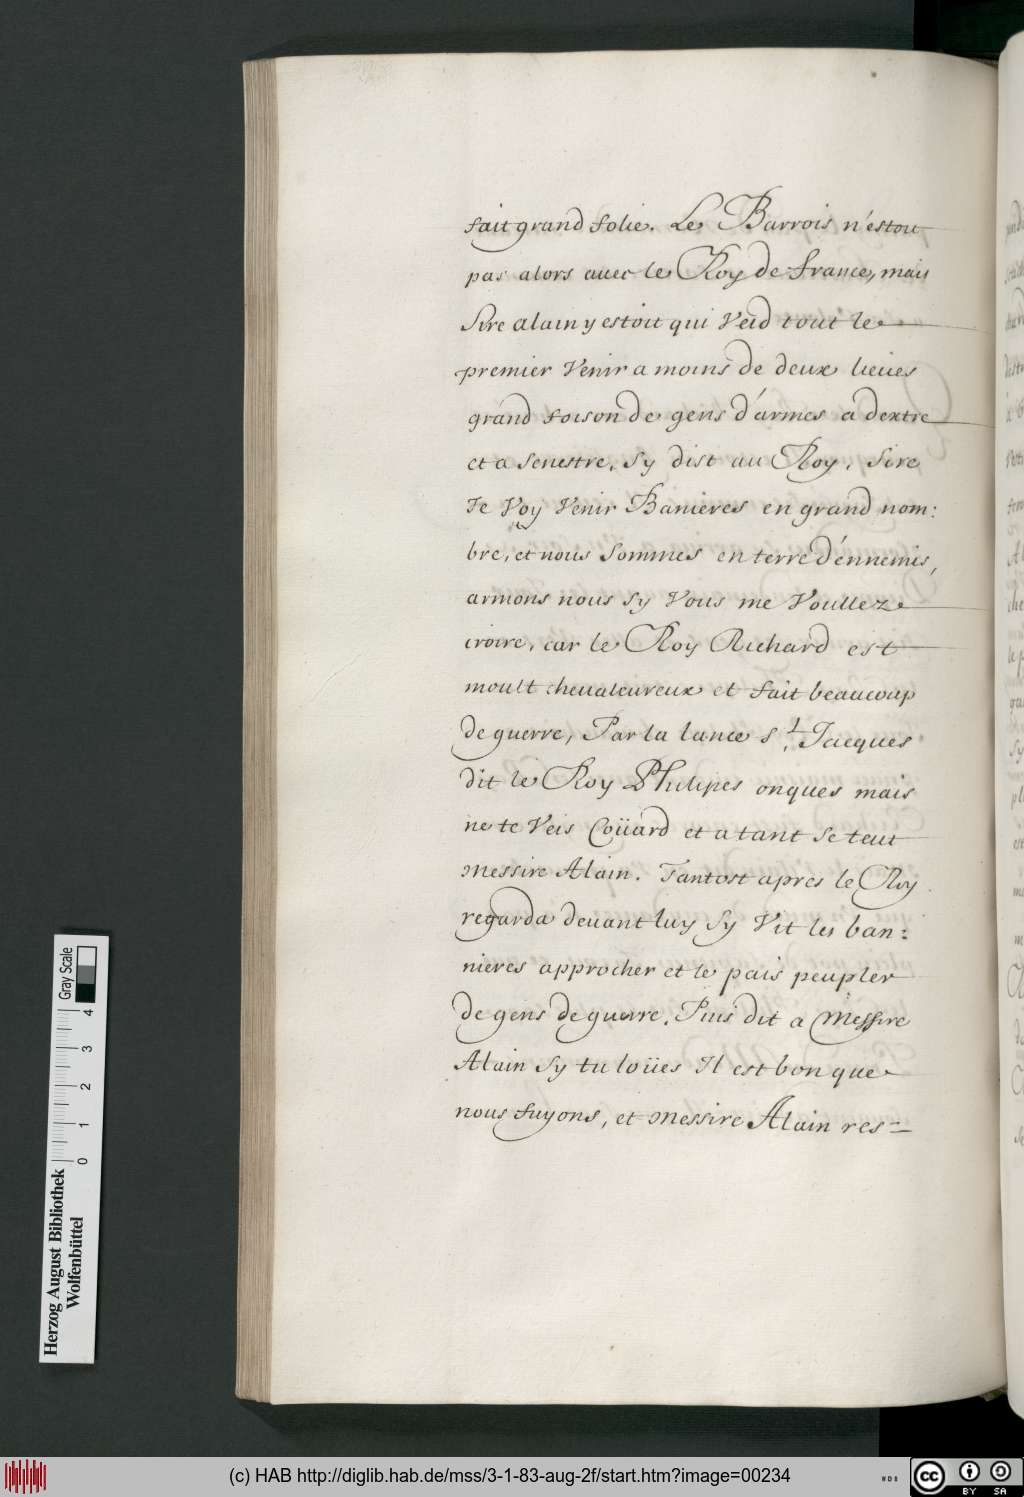 fait grand folie. Le Barrois n'estoit
pas alors avec le Roy de france, mais
Sire alain y estoit qui Veid tout le
premier Venir a moins de deux lieues
grand foison de gens d'armes a dextre
et a Senestre, sy dist au Roy, Sire
Je Voy Venir Banieres en grand nom:
bre, et nous Sommes en terre d'ennemis,
armons nous sy Vous me Voullez
croire, car le Roy Richard est
moult chevaleureux et fait beaucoup
de guerre, Par la lance S.t Jacques
dit le Roy Philipes onques mais
ne te Veis Coüard et a tant Se teut
messire Alain. Tantost apres le Roy
regarda devant luy Sy Vit les ban:
nieres approcher et le pais peupler
de gens de guerre. Puis dit a Messire
Alain Sy tu loües Il est bon que
nous fuyons, et messire Alain res=
Gray Scale
4 3 2 1 0
Herzog August Bibliothek
Wolfenbüttel
(c) HAB http://diglib.hab.de/mss/3-1-83-aug-2f/start.htm?image=00234
WDB
cc BY SA